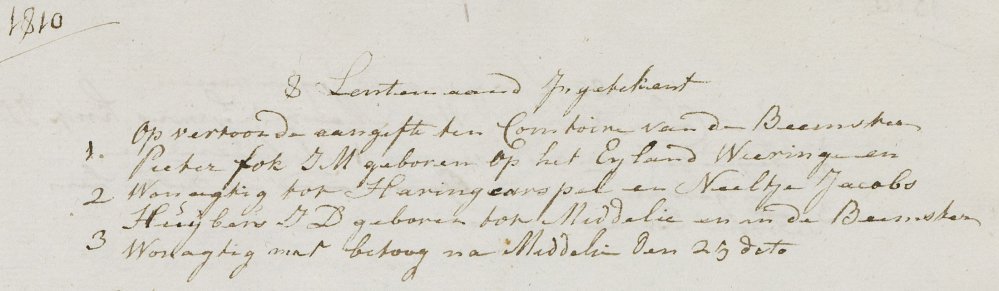 1810
8 Lentemaand Ingetekent
Op vertoonde aangifte ten Comtoire van de Beemster
1. Pieter fok JM geboren Op het Eyland Wieringe en
2 Wonagtig tot Haringcarspel en Neeltje Jacobs
Huijbers J D geboren tot Middelie en in de Beemster
3 Wonagtig met betoog na Middelie den 25 dito